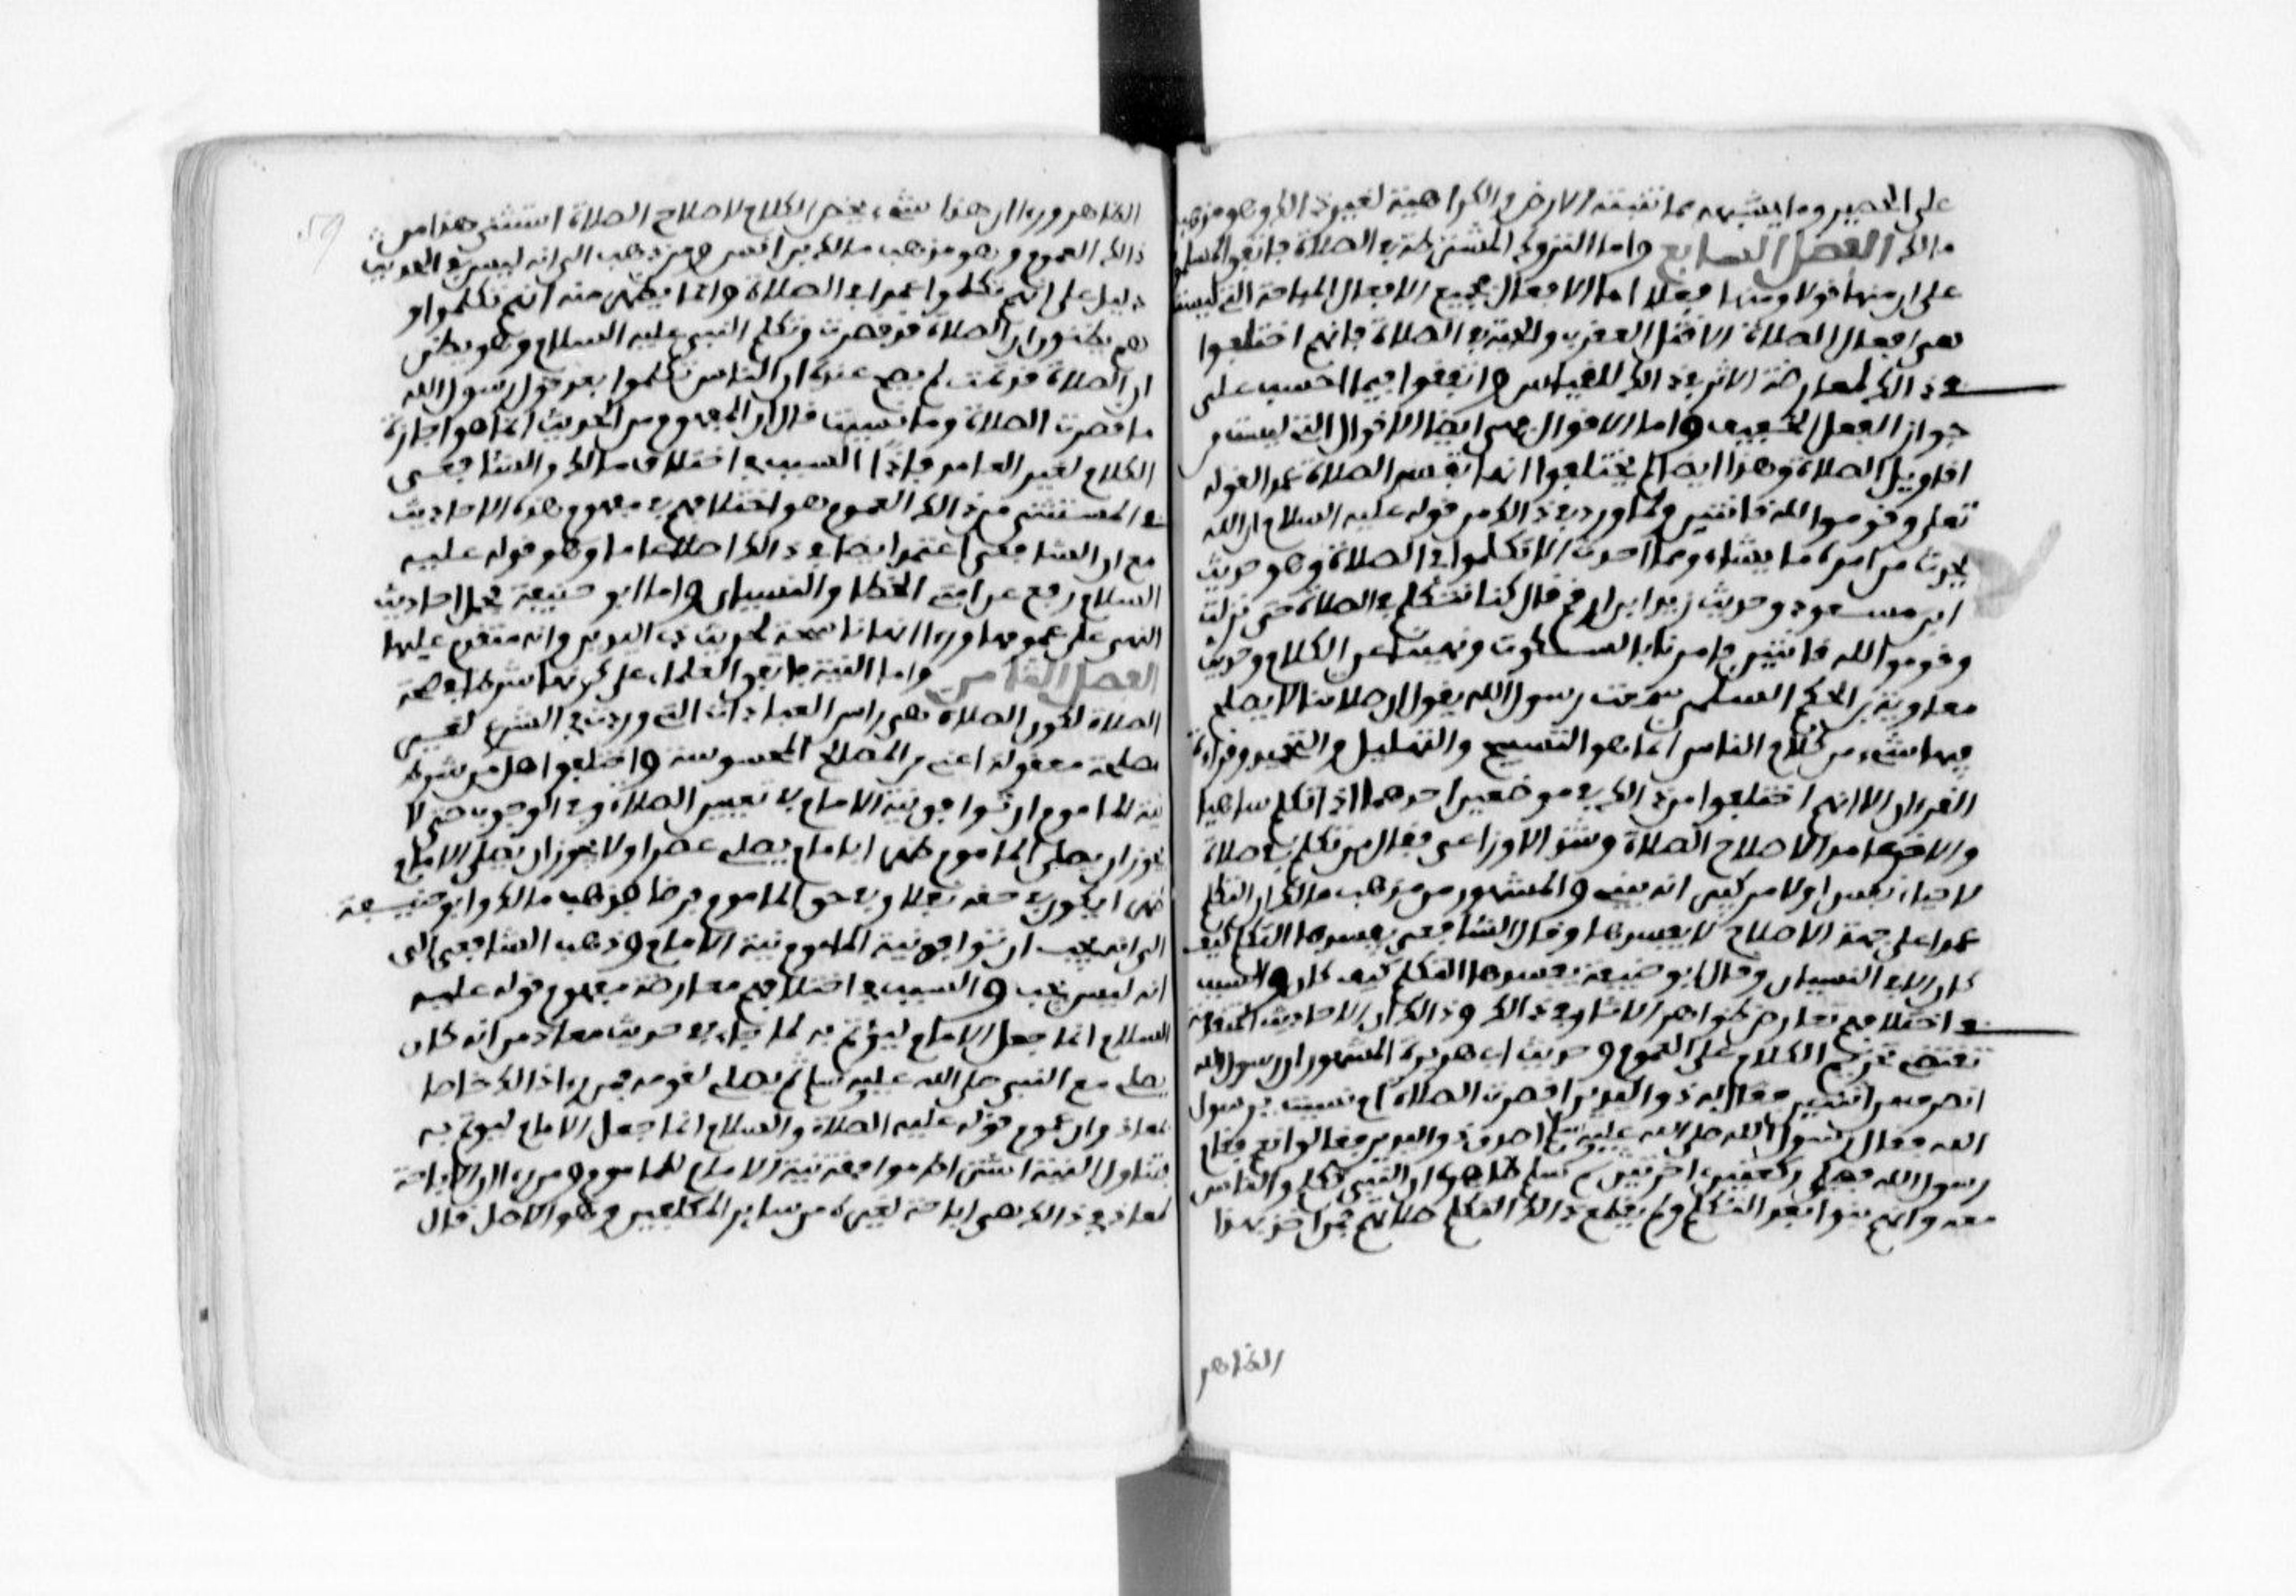 على الحصير وما يشبهه مما تنبته الارض والكراهية لغير ذالك وهو مذهب
مالك الفصل السابع واما التروك المشترطة في الصلاة فاتفق المسلمون
على ان منها قولا ومنها فعلا اما الافعال فجميع الافعال المباحة التي ليست
هي افعال الصلاة الا قتل العقرب والحية في الصلاة فانهم اختلفوا
في ذالك لمعارضة الاثر في ذالك للقياس واتفقوا فيما احسب على
جواز الفعل الخفيف واما الاقوال فهي ايضا الاقوال التي ليست من
اقاويل الصلاة وهذا ايضا لم يختلفوا انها تفسد الصلاة عمدا لقوله
تعلى وقوموا لله قانتين ولما ورد في ذالك من قوله عليه السلام ان الله
يحدث من امره ما يشاء ومما احدث الا تكلموا في الصلاة وهو حديث
ابن مسعود وحديث زيد ابن ارقم قال كنا نتكلم في الصلاة حتى نزلت
وقوموا لله قانتين فامرنا بالسكوت ونهينا عن الكلام وحديث
معاوية بن الحكم السلمي سمعت رسول الله يقول ان صلاتنا لا يصلح
فيها شيء من كلام الناس انما هو التسبيح والتهليل والتحميد وقراءة
القرءان الا انهم اختلفوا من ذالك في موضعين احدهما اذا تكلم ساهيا
والاخر عامدا لاصلاح الصلاة وشذ الاوزاعي فقال من تكلم في صلاة
لاحياء نفس او لامر كبير انه يبني والمشهور من مذهب مالك ان التكلم
عمدا على جهة الاصلاح لا يفسدها وقال الشافعي يفسدها التكلم كيف
كان الا مع النسيان وقال ابو حنيفة يفسدها التكلم كيف كان والسبب
في اختلافهم تعارض ظواهر الاثار في ذالك وذالك ان الاحاديث المتقدمة
تقتضي تحريم الكلام على العموم وحديث ابي هريرة المشهور ان رسول الله
انصرف من اثنتين فقال له ذو اليدين اقصرت الصلاة ام نسيت يرسول
الله فقال رسول الله صلى الله عليه وسلم اصدق ذو اليدين فقالوا نعم فقام
رسول الله فصلى ركعتين اخرتين ثم سلم ظاهره ان النبي تكلم والناس
معه وانهم بنوا بعد التكلم ولم يقطع ذالك التكلم صلاتهم فمن اخذ بهذا
الظاهر
الظاهر ورءا ان هذا شيء يخص الكلام لاصلاح الصلاة استثنى هذا من
ذالك العموم وهو مذهب مالك بن انس ومن ذهب الى انه ليس في الحديث
دليل على انهم تكلموا عمدا في الصلاة وانما يظهر منه انهم تكلموا و
هم يظنون ان الصلاة قد قصرت وتكلم النبي عليه السلام وهو يظن
ان الصلاة قد تمت لم يصح عنده ان الناس تكلموا بعد قول رسول الله
ما قصرت الصلاة وما نسيت قال ان المفهوم من الحديث انما هو اجازة
الكلام لغير العامد فاذا السبب في اختلاف مالك والشافعي
في المستثنى من ذالك العموم هو اختلافهم في مفهوم هذه الاحاديث
مع ان الشافعي اعتمد ايضا في ذالك اصلا عاما وهو قوله عليه
السلام رفع عن امتي الخطا والنسيان واما ابو حنيفة فحمل احاديث
النهي على عمومها ورءا انها ناسخة لحديث ذي اليدين وانه متقدم عليها
الفصل الثامن واما النية فاتفق العلماء على كونها شرطا في صحة
الصلاة لكون الصلاة هي راس العبادات التي وردت في الشرع لغير
مصلحة معقولة اعني من المصالح المحسوسة واختلفوا هل من شرط
نية الماموم ان توافق نية الامام في تعيين الصلاة وفي الوجوب حتى لا
يجوز ان يصلي الماموم ظهرا بامام يصلي عصرا ولا يجوز ان يصلي الامام
ظهرا يكون في حقه نفلا وفي حق الماموم فرضا فذهب مالك وابو حنيفة
الى انه يجب ان توافق نية الماموم نية الامام وذهب الشافعي الى
انه ليس يجب والسبب في اختلافهم معارضة مفهوم قوله عليه
السلام انما جعل الامام ليؤتم به لما جاء في حديث معاذ من انه كان
يصلي مع النبي صلى الله عليه وسلم ثم يصلي بقومه فمن رءا ذالك خاصا
لمعاذ وان عموم قوله عليه الصلاة والسلام انما جعل الامام ليوتم به
يتناول النية اشترط موافقة نية الامام للماموم ومن رءا ان الاباحة
لمعاذ في ذالك هي اباحة لغيره من ساير المكلفين وهو الاصل قال